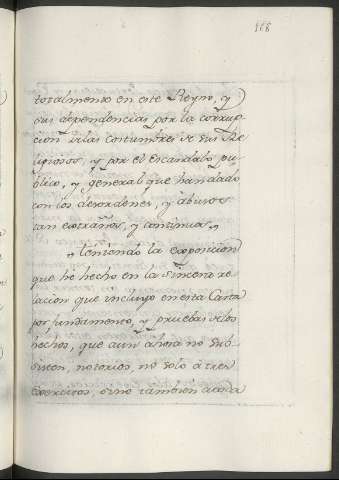 168
totalmente en este Reyno, y
sus dependencias por la corrup-
cion de las costumbres de sus Re-
ligiosos, y por el Escandalo pu-
blico, y general que han dado
con los desordenes, y abusos
tan extraños, y continuos.
Teniendo la exposicion
que he hecho en la sincera re-
lacion que incluyo en esta Carta
por fundamento, y pruebas de los
hechos, que aun ahora no sub-
sisten, notorios, no solo á tres
Exercitos, sino tambien á toda